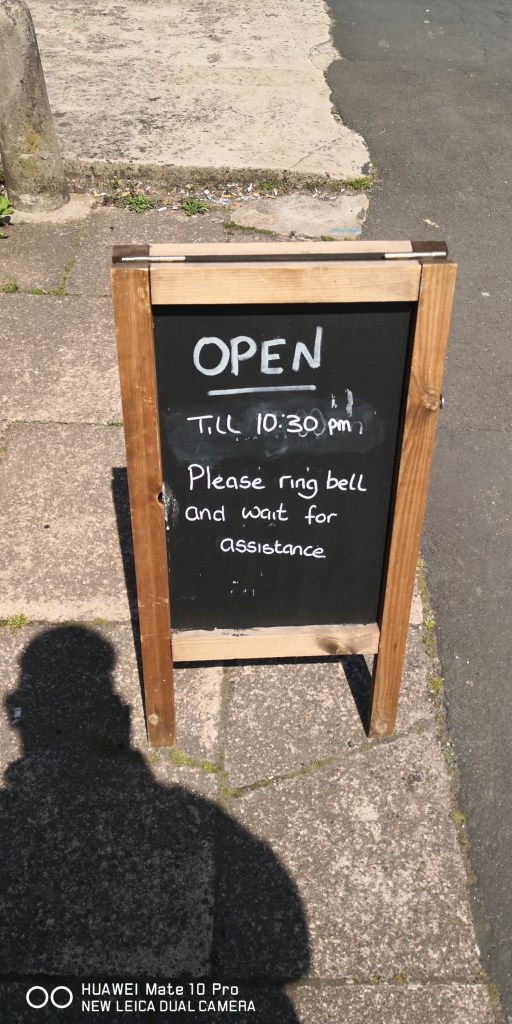 OPEN
TILL 10:30 pm
Please ring bell
and wait for
assistance
HUAWEI Mate 10 Pro
NEW LEICA DUAL CAMERA